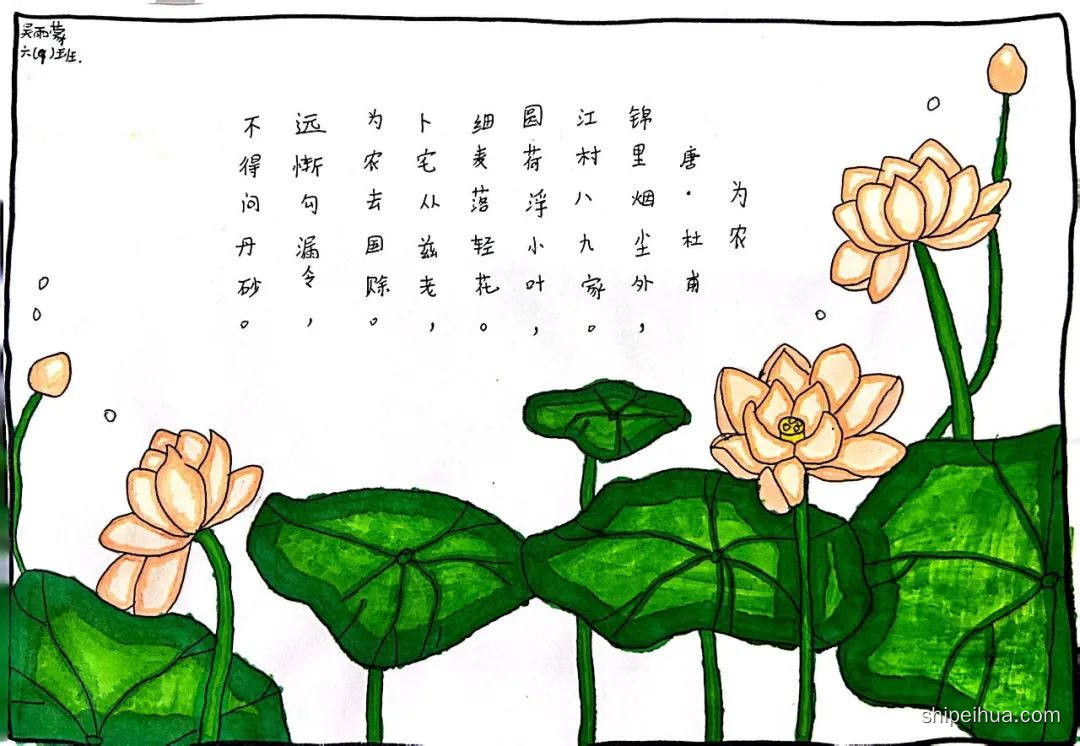 吴雨蒙
六( )班.
为农
唐·杜甫
锦里烟尘外，
江村八九家。
圆荷浮小叶，
细麦落轻花。
卜宅从兹老，
为农去国赊。
远惭勾漏令，
不得问丹砂。
shipeihua.com